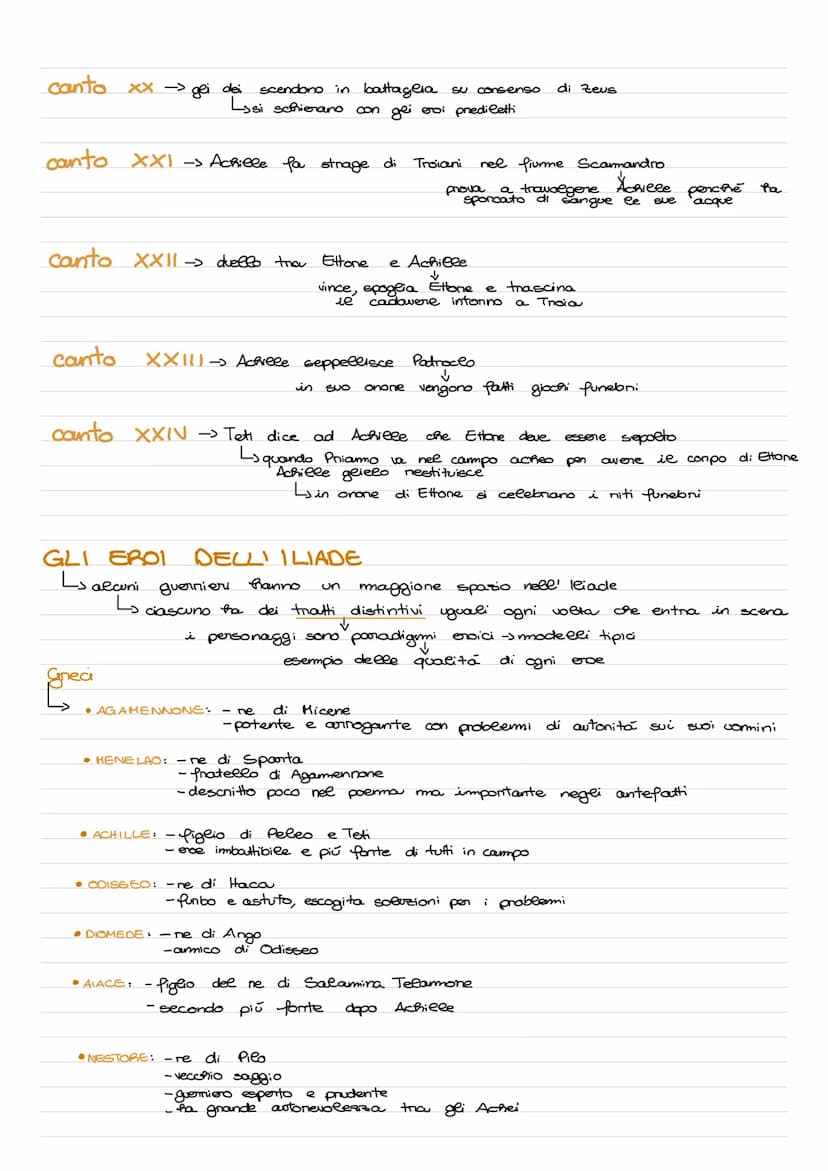 canto XX → gli dei scendono in battaglia su consenso di Zeus
↳ si schierano con gli eroi prediletti
canto XXI → Achille fa strage di Troiani nel fiume Scamandro
↓
prova a travolgere Achille perché ha
sporcato di sangue le sue acque
canto XXII → duello tra Ettore e Achille
↓
vince, spoglia Ettore e trascina
il cadavere intorno a Troia
canto XXIII → Achille seppellisce Patroclo
↓
in suo onore vengono fatti giochi funebri
canto XXIV → Teti dice ad Achille che Ettore deve essere sepolto
↳ quando Priamo va nel campo acheo per avere il corpo di Ettore
Achille glielo restituisce
↳ in onore di Ettore si celebrano i riti funebri
GLI EROI DELL'ILIADE
↳ alcuni guerrieri hanno un maggiore spazio nell'Iliade
↳ ciascuno ha dei tratti distintivi uguali ogni volta che entra in scena
↓
i personaggi sono paradigmi eroici → modelli tipici
↓
esempio delle qualità di ogni eroe
Greci
↳
• AGAMENNONE: - re di Micene
- potente e arrogante con problemi di autorità sui suoi uomini
• MENELAO: - re di Sparta
- fratello di Agamennone
- descritto poco nel poema ma importante negli antefatti
• ACHILLE: - figlio di Peleo e Teti
- eroe imbattibile e più forte di tutti in campo
• ODISSEO: - re di Itaca
- furbo e astuto, escogita soluzioni per i problemi
• DIOMEDE: - re di Argo
- amico di Odisseo
• AIACE: - figlio del re di Salamina Telamone
- secondo più forte dopo Achille
• NESTORE: - re di Pilo
- vecchio saggio
- guerriero esperto e prudente
- ha grande autorevolezza tra gli Achei